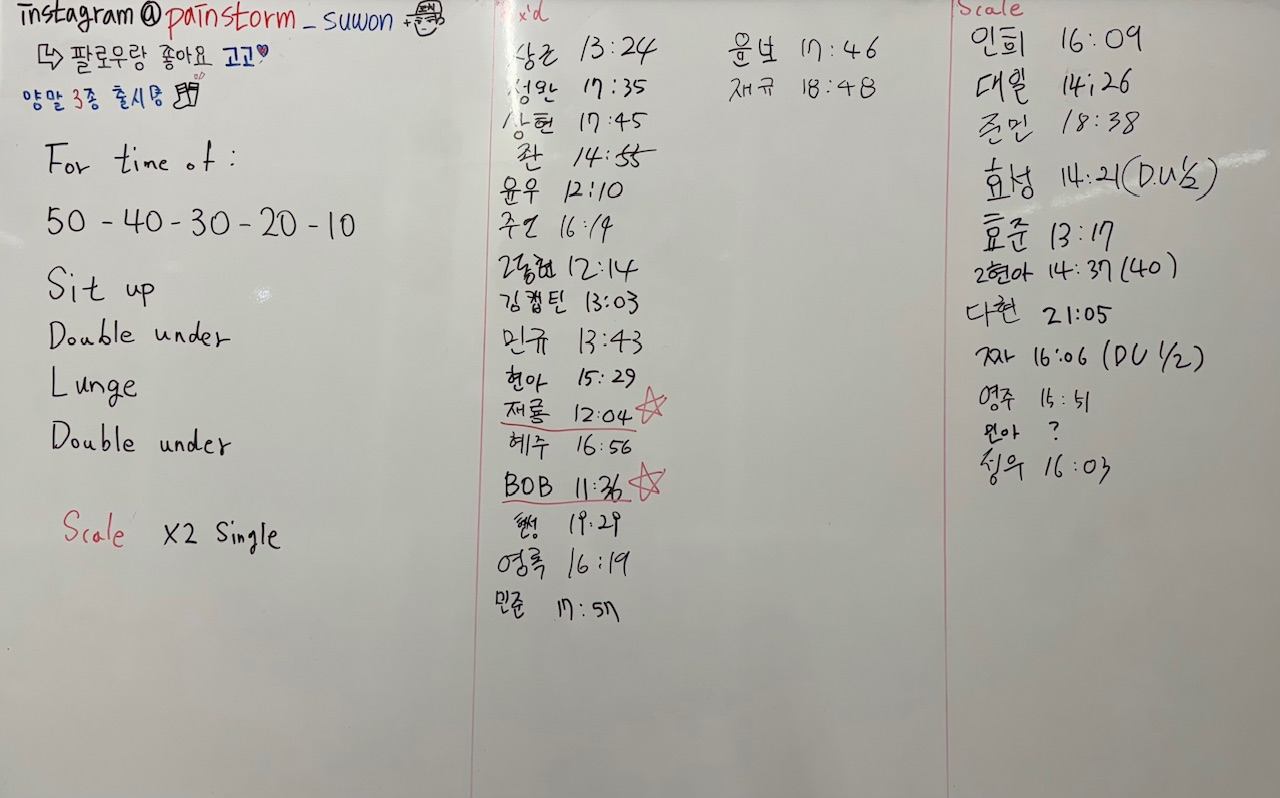 instagram@painstorm_suwon
팔로우랑 좋아요 고고
양말 3종 출시중
For time of :
50 - 40 - 30 - 20 - 10
Sit up
Double under
Lunge
Double under
Scale X2 Single
x'd
상근 13:24
성완 17:35
상현 17:45
좐 14:55
윤우 12:10
주연 16:14
2동현 12:14
김캡틴 13:03
민규 13:43
현아 15:29
재룡 12:04
혜주 16:56
BOB 11:36
현성 19:29
영록 16:19
민준 17:57
윤보 17:46
재규 18:48
Scale
인희 16:09
대일 14:26
준민 18:38
효성 14:21 (D.U 1/2)
효준 13:17
2현아 14:37 (40)
다현 21:05
짜 16:06 (DU 1/2)
영주 15:51
?
16:03